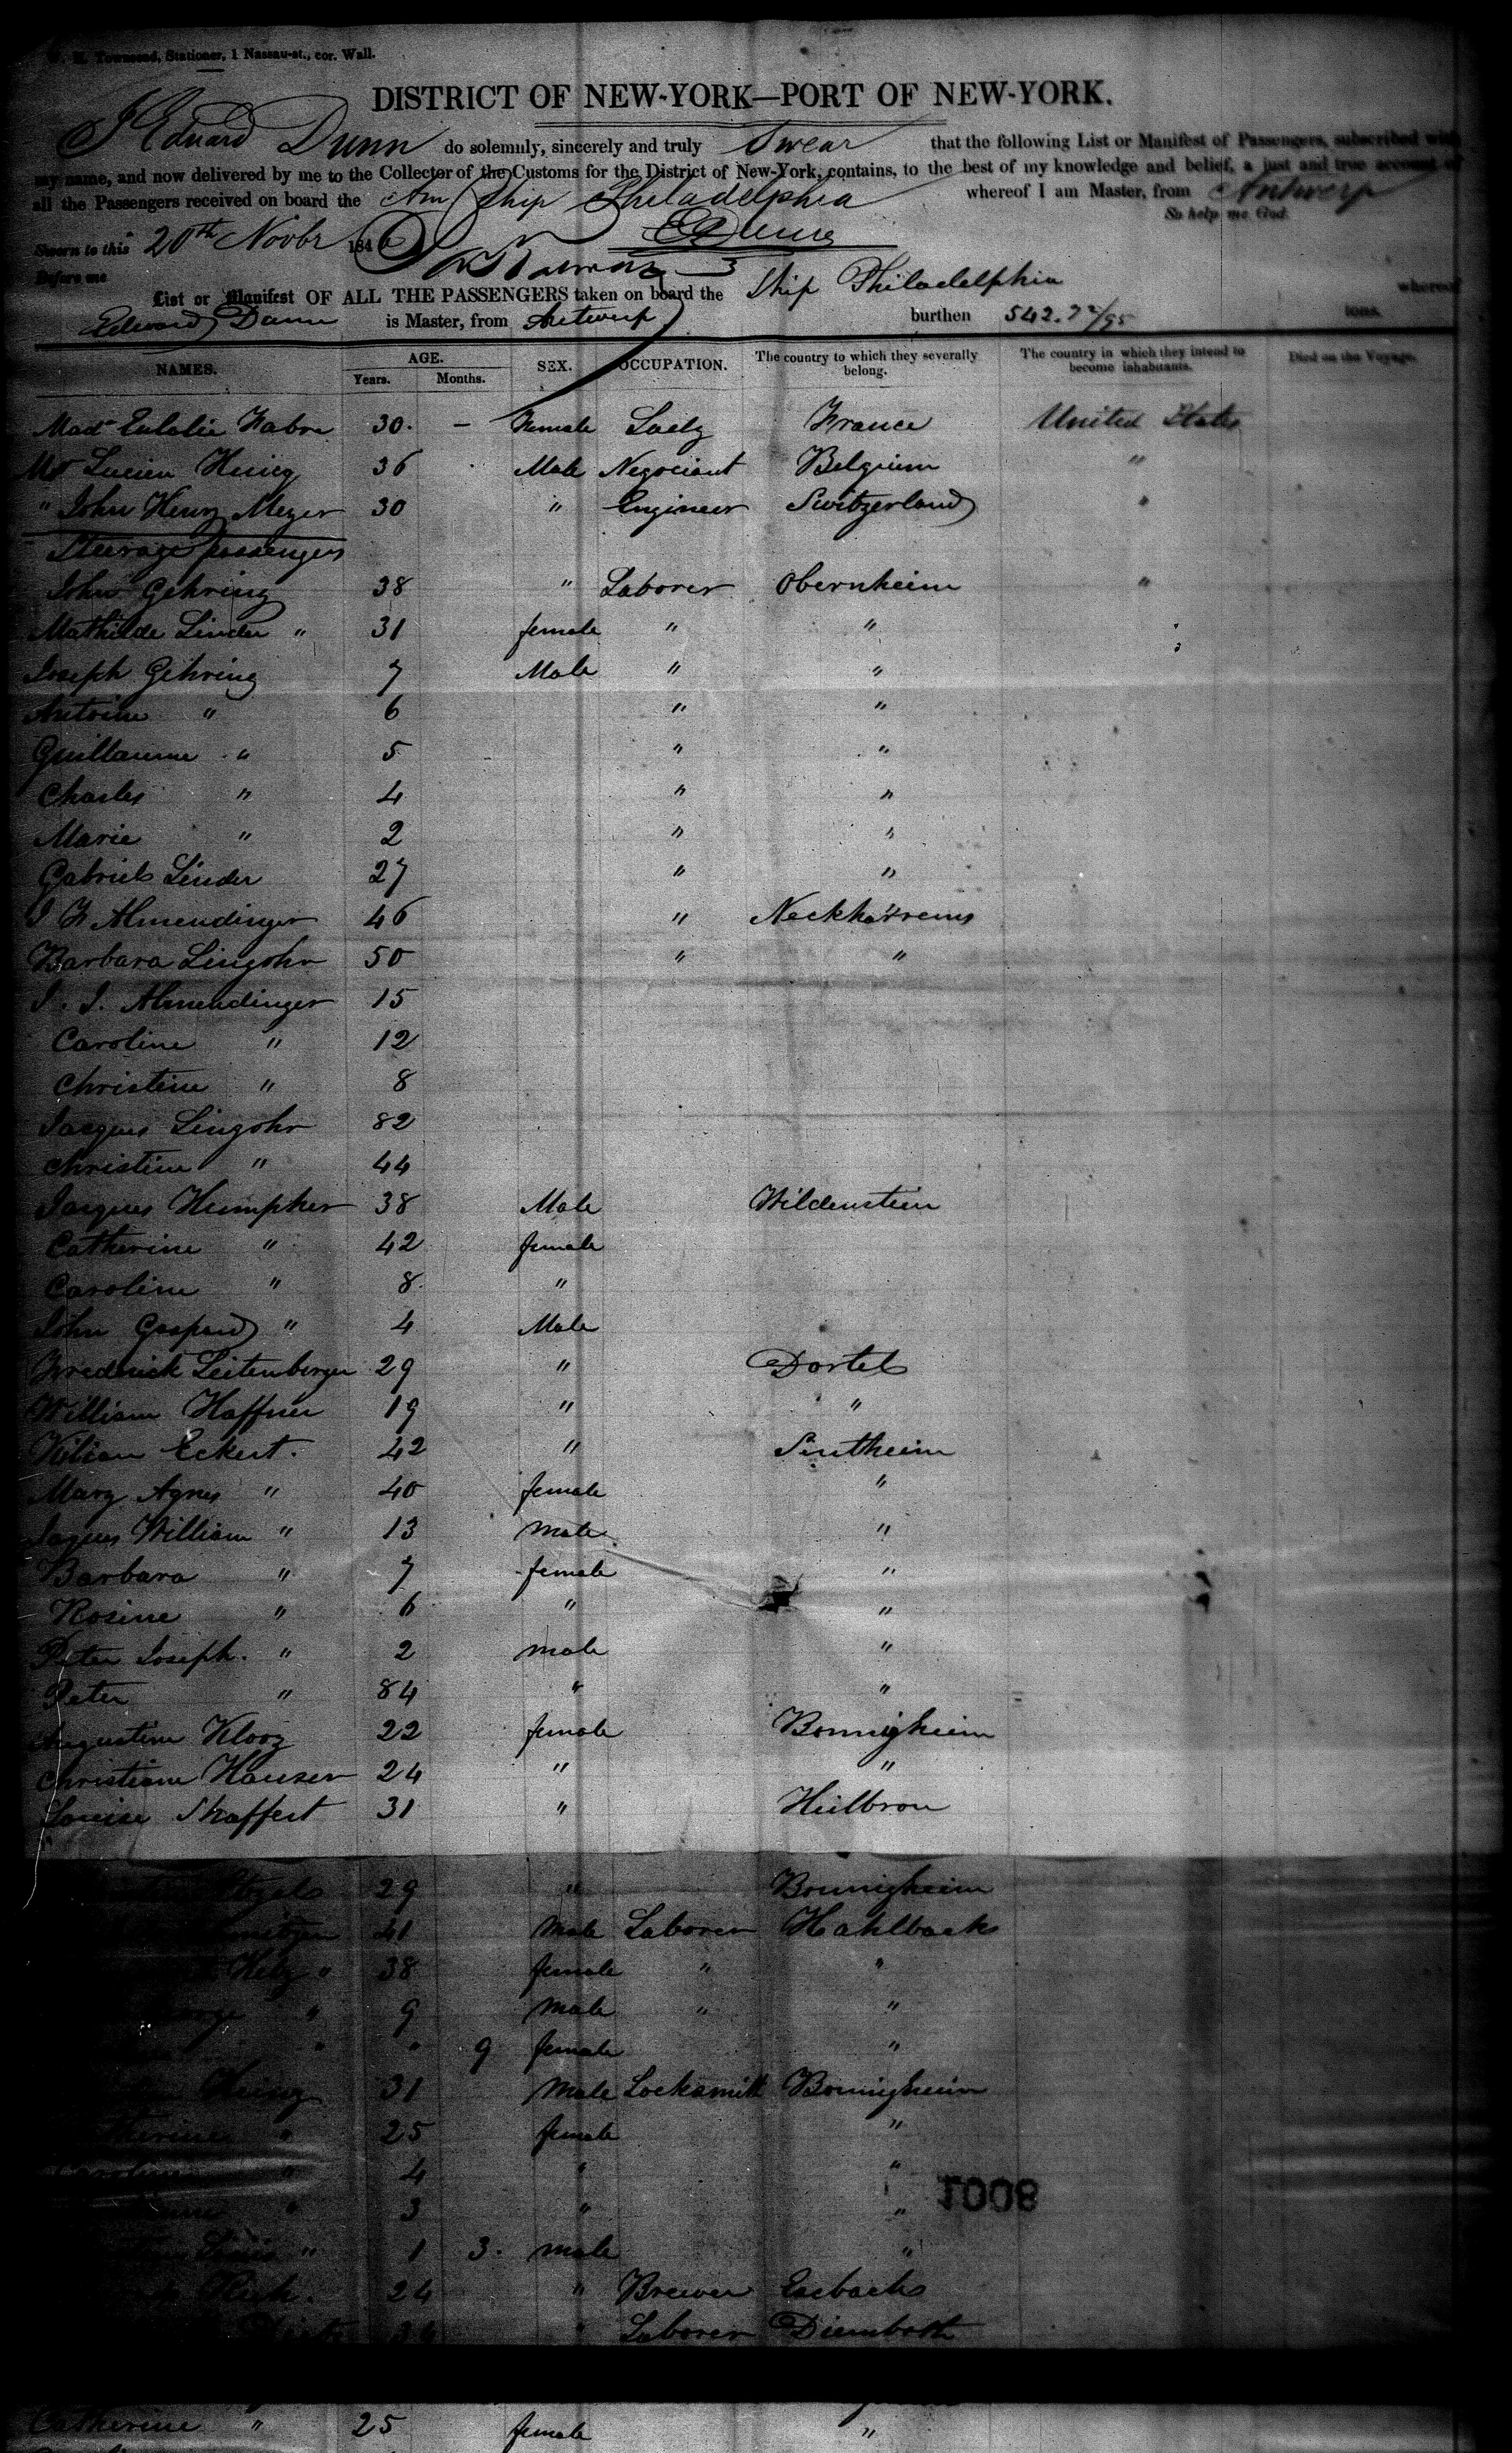 H. Townsend, Stationer, 1 Nassau-st., cor. Wall.
DISTRICT OF NEW-YORK—PORT OF NEW-YORK.
I Eduard Dunn do solemnly, sincerely and truly Swear that the following List or Manifest of Passengers, subscribed with
my name, and now delivered by me to the Collector of the Customs for the District of New-York, contains, to the best of my knowledge and belief, a just and true account of
all the Passengers received on board the Am Ship Philadelphia whereof I am Master, from Antwerp
So help me God.
Sworn to this 20th Novbr 1846 E Dunn
Before me
List or Manifest OF ALL THE PASSENGERS taken on board the Ship Philadelphia whereof
Edward Dunn is Master, from Antwerp burthen 542.72/95 tons.
NAMES. AGE. SEX. OCCUPATION. The country to which they severally belong. The country in which they intend to become inhabitants. Died on the Voyage.
Years. Months.
Mad Eulalie Fabre 30. – Female Lady France United States
Mr Lucien Heinig 36 Male Negociant Belgium "
" John Henry Meyer 30 " Engineer Switzerland "
Steerage passengers
John Gehring 38 " Laborer Obernheim "
Mathilde Linder " 31 female " "
Joseph Gehring 7 Male " "
Antoine " 6 " "
Guillaume " 5 " "
Charles " 4 " "
Marie " 2 " "
Gabriel Linder 27 " "
J F Almendinger 46 "
Barbara Lingohr 50 " "
J. J. Almendinger 15
Caroline " 12
Christine " 8
Jacques Lingohr 82
Christine " 44
Jacques Humpher 38 Male Wildenstein
Catherine " 42 female
Caroline " 8. "
John Gaspard " 4 Male
Frederick Leitenberger 29 " Dortel
William Haffner 19 " "
Kilian Eckert. 42 " Sintheim
Mary Agnes " 40 female "
Jaques William " 13 male "
Barbara " 7 female "
Rosine " 6 " "
Peter Joseph. " 2 male "
Peter " 84 " "
Augustine Klooz 22 female Bonnigheim
Christiane Hauser 24 " "
Louise Shaffert 31 " Heilbron
29 " Bonnigheim
41 Male Laborer Hahlbach
" 38 female " "
George " 9 male " "
" " 9 female "
Heinz 31 Male Locksmith Bonnigheim
Catherine " 25 female "
Caroline " 4 " "
" 3 " "
Louis " 1 3. male "
24 " Brewer Easbach
" Laborer Diemboth
1008
Catherine " 25 female "